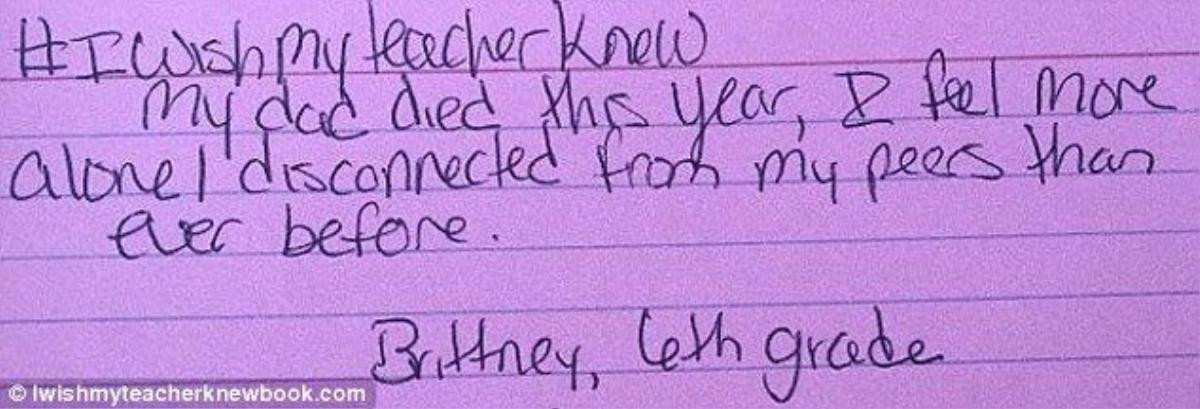 #IWishmyteacherKnew
My dad died this year, I feel more
alone/disconnected from my peers than
ever before.
Brittney, 6th grade
© Iwishmyteacherknewbook.com